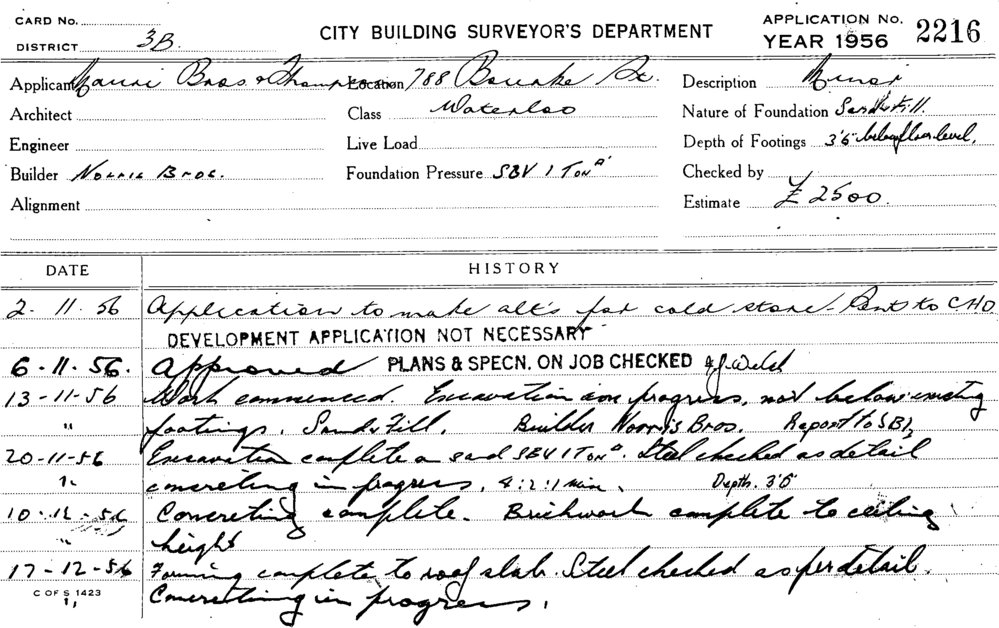 CARD No.
DISTRICT 3B.
CITY BUILDING SURVEYOR'S DEPARTMENT
APPLICATION No. 2216
YEAR 1956
Applicant Mauri Bros & Thompson Location 788 Bourke St. Description Minor
Architect Class Waterloo Nature of Foundation Sand & Fill.
Engineer Live Load Depth of Footings 3'6" below floor level.
Builder Norris Bros. Foundation Pressure SBV 1 Ton Checked by
Alignment Estimate £2500.
DATE HISTORY
2. 11. 56 Application to make alt's for cold store - Sent to C.H.O.
DEVELOPMENT APPLICATION NOT NECESSARY
6-11-56. Approved PLANS & SPECN. ON JOB CHECKED Welsh
13-11-56 Work commenced. Excavation in progress, not below existing
" footings. Sand & Fill. Builder Norris Bros. Report to SBI,
20-11-56 Excavation complete on sand SBV 1 Ton Steel checked as detail
" concreting in progress. 4:2:1 min. Depth. 3'6"
10-12-56 Concreting complete. Brickwork complete to ceiling
height
17-12-56 Forming complete to roof slab. Steel checked as per detail.
C OF S 1423
" Concreting in progress.